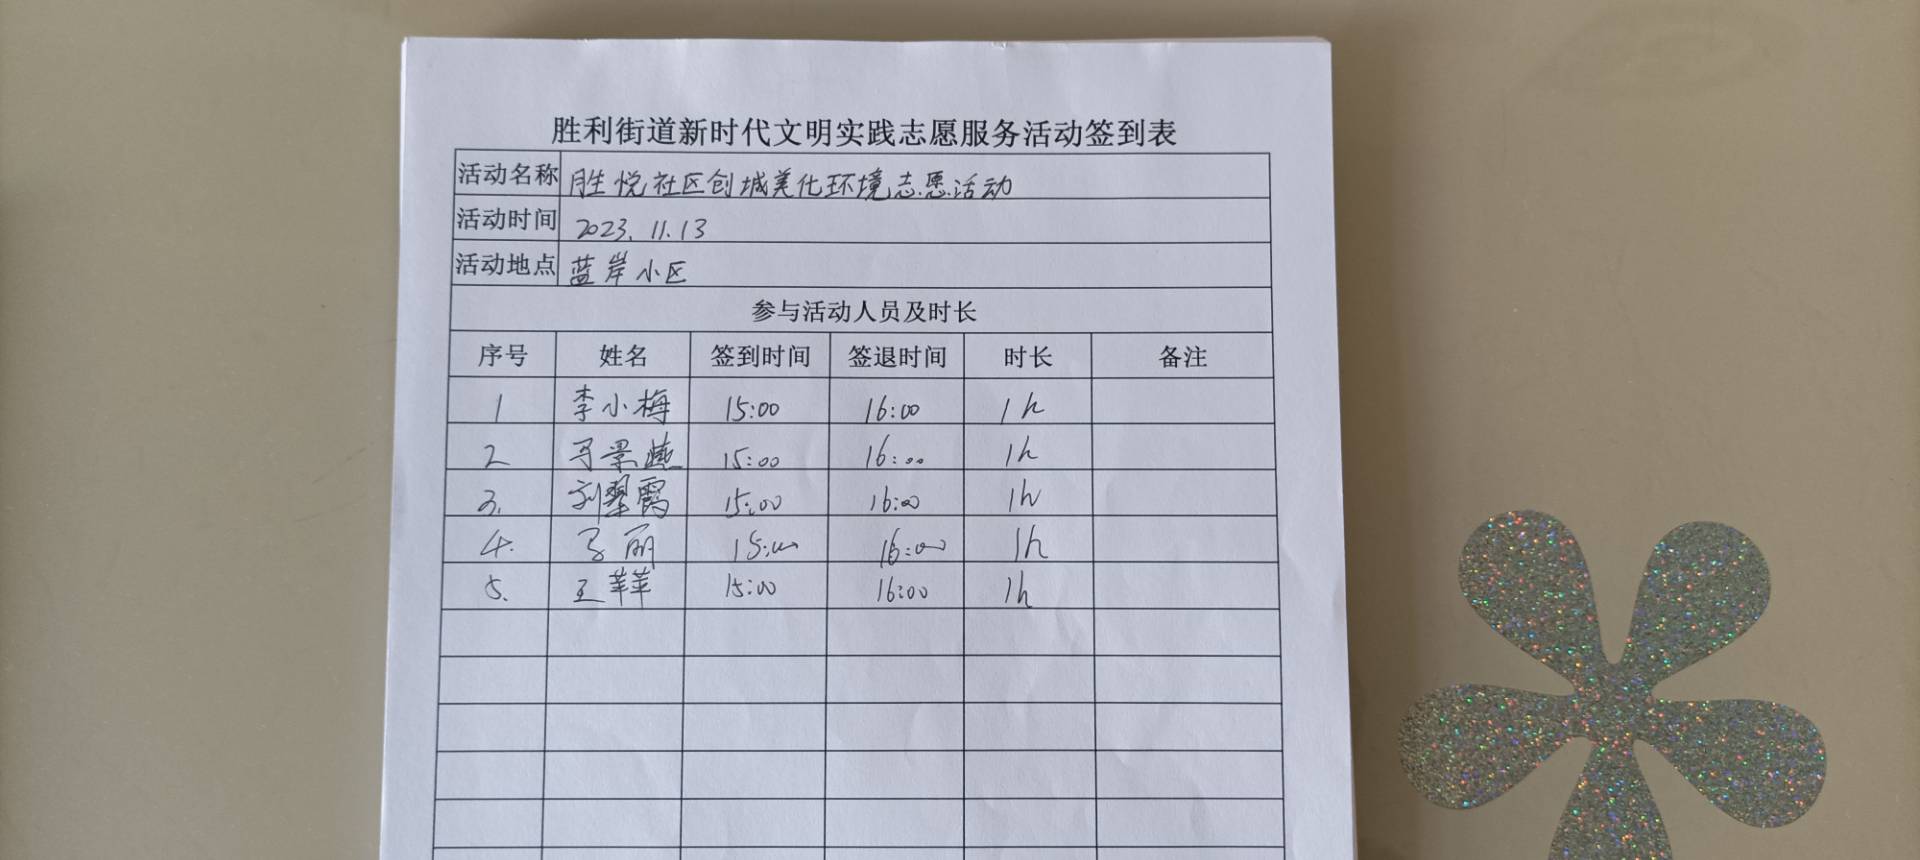 胜利街道新时代文明实践志愿服务活动签到表
活动名称 胜悦社区创城美化环境志愿活动
活动时间 2023.11.13
活动地点 蓝岸小区
参与活动人员及时长
序号 姓名 签到时间 签退时间 时长 备注
1 李小梅 15:00 16:00 1h
2 马景燕 15:00 16:00 1h
3. 刘翠霞 15:00 16:00 1h
4. 马丽 15:00 16:00 1h
5. 王苹苹 15:00 16:00 1h